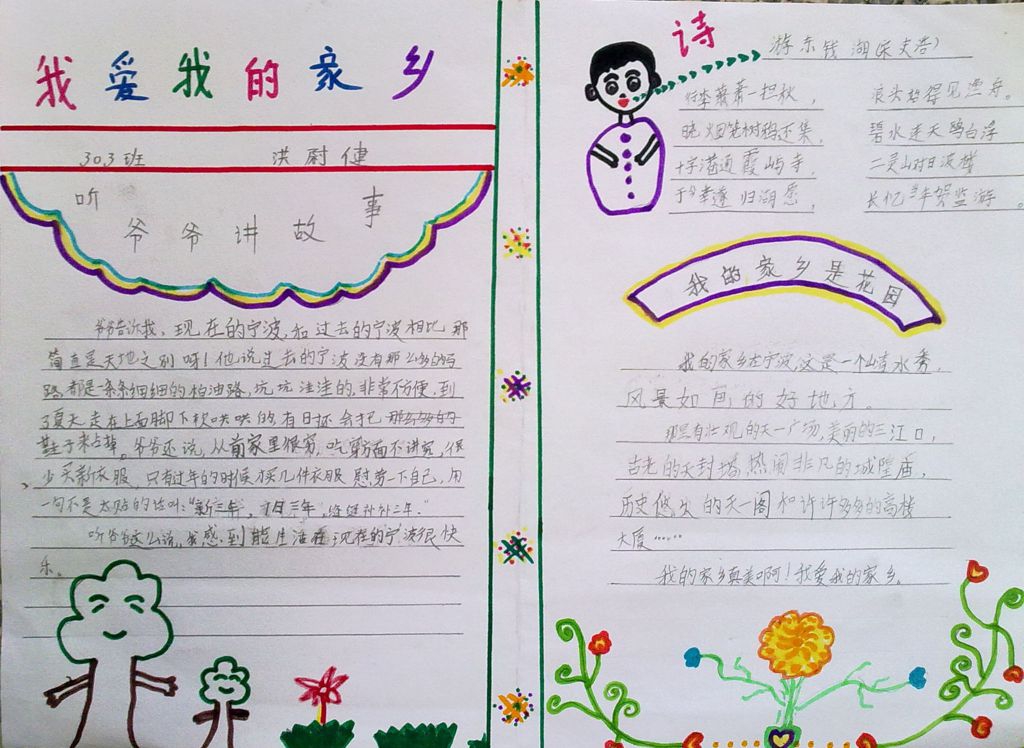 我爱我的家乡
303班 洪尉健
听爷爷讲故事
爷爷告诉我，现在的宁波，和过去的宁波相比，那
简直是天地之别呀！他说过去的宁波没有那么多的马
路，都是一条条细细的柏油路，坑坑洼洼的，非常不方便，到
了夏天走在上面脚下软哄哄的，有日还会把
鞋子来占掉。爷爷还说，从前家里很穷，吃穿方面不讲究，很
少买新衣服，只有过年的时候才买几件衣服慰劳一下自己，用
一句不是太贴的话叫："新三年，旧三年，缝缝补补二年。"
听爷爷这么说，我感到能生活在现在的宁波很快
乐。
诗
游东钱湖(宋史浩)
行李萧萧一担秋，
浪头始得见渔舟。
晓烟笼树鸦还集，
碧水连天鸥自浮
十字港通霞屿寺，
二灵山对月波楼
于今幸遂归湖愿，
长忆当年贺监游。
我的家乡是花园
我的家乡在宁波，这是一个山青水秀，
风景如画的好地方。
那里有壮观的天一广场，美丽的三江口，
古老的天封塔，热闹非凡的城隍庙，
历史悠久的天一阁和许许多多的高楼
大厦……
我的家乡真美啊！我爱我的家乡。